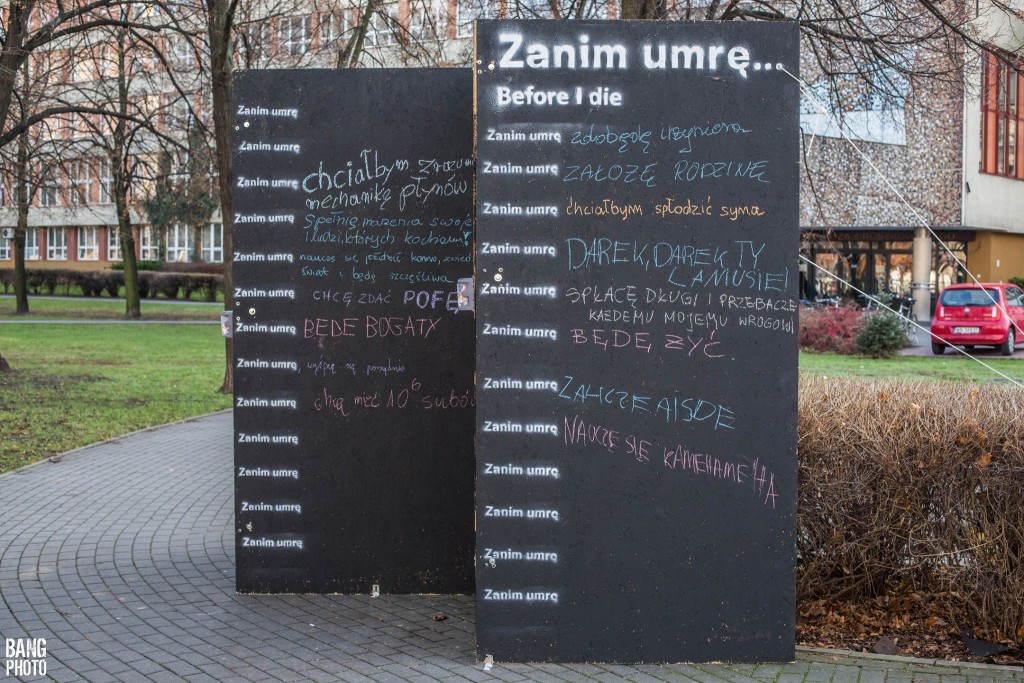 Zanim umrę
Zanim umrę
Zanim umrę chciałbym
mechanikę płynów
Zanim umrę spełnię marzenia swoje
i ludzi, których kocham!
Zanim umrę
świat i będę szczęśliwa
Zanim umrę CHCĘ ZDAĆ POFE
Zanim umrę BĘDE BOGATY
Zanim umrę się porządnie
Zanim umrę chcę mieć 10⁶ subów
Zanim umrę
Zanim umrę
Zanim umrę
Zanim umrę
Zanim umrę...
Before I die
Zanim umrę zdobędę inżyniera
Zanim umrę ZAŁOŻĘ RODZINĘ
Zanim umrę chciałbym spłodzić syna
Zanim umrę DAREK, DAREK TY
LAMUSIE!
Zanim umrę SPŁACĘ DŁUGI I PRZEBACZĘ
KAŻDEMU MOJEMU WROGOWI
Zanim umrę BĘDĘ ŻYĆ.
Zanim umrę ZALICZĘ AISDE
Zanim umrę NAUCZĘ SIĘ KAMEHAMEHA
Zanim umrę
Zanim umrę
Zanim umrę
Zanim umrę
BANG
PHOTO